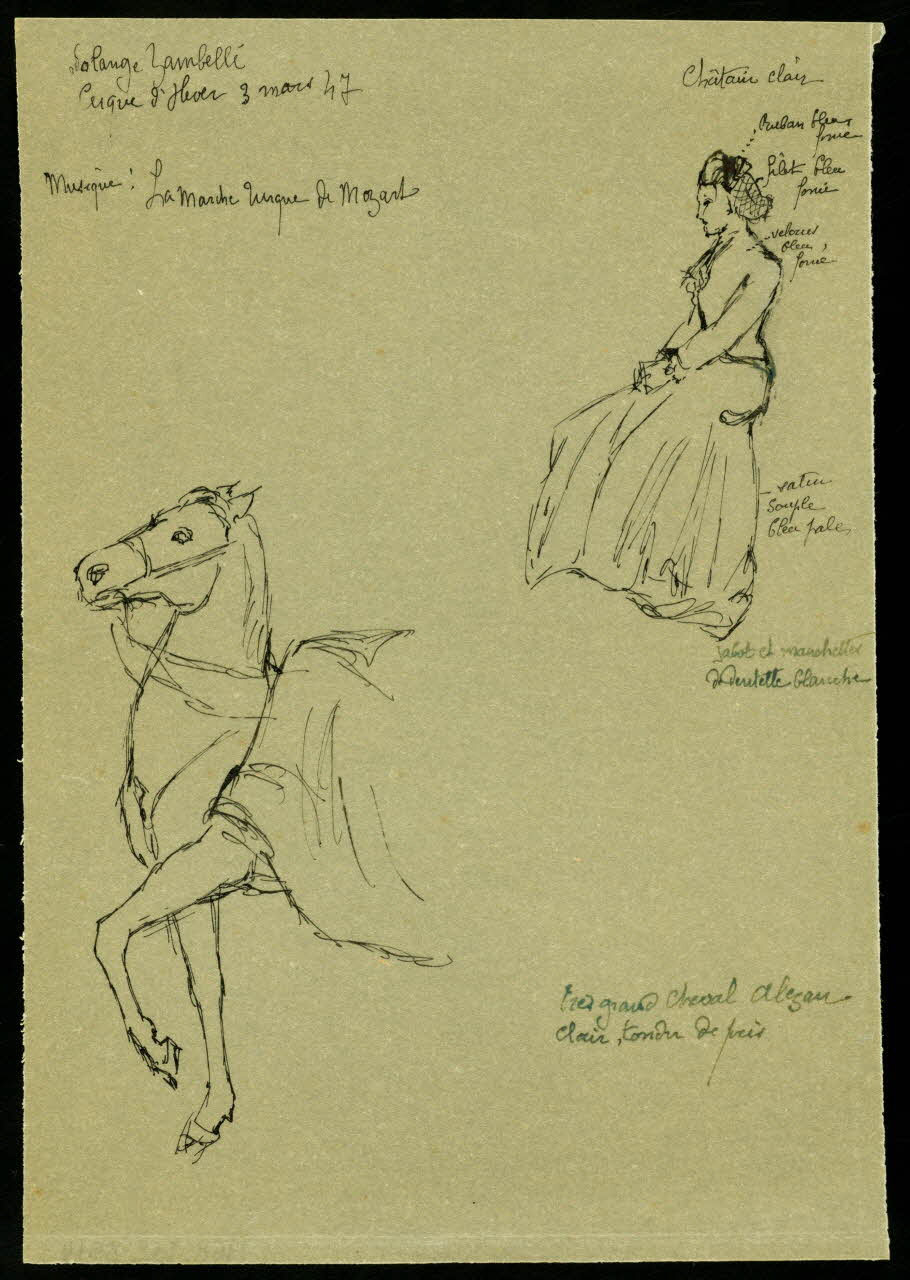 Solange Zambelli
Cirque d'Hiver 3 mars 47
Musique : La Marche turque de Mozart
Châtain clair
ruban bleu
foncé
filet bleu
foncé
velours
bleu
foncé
satin
souple
bleu pale
jabot et manchettes
de dentelle blanche
très grand cheval alezan
clair, tondu de près